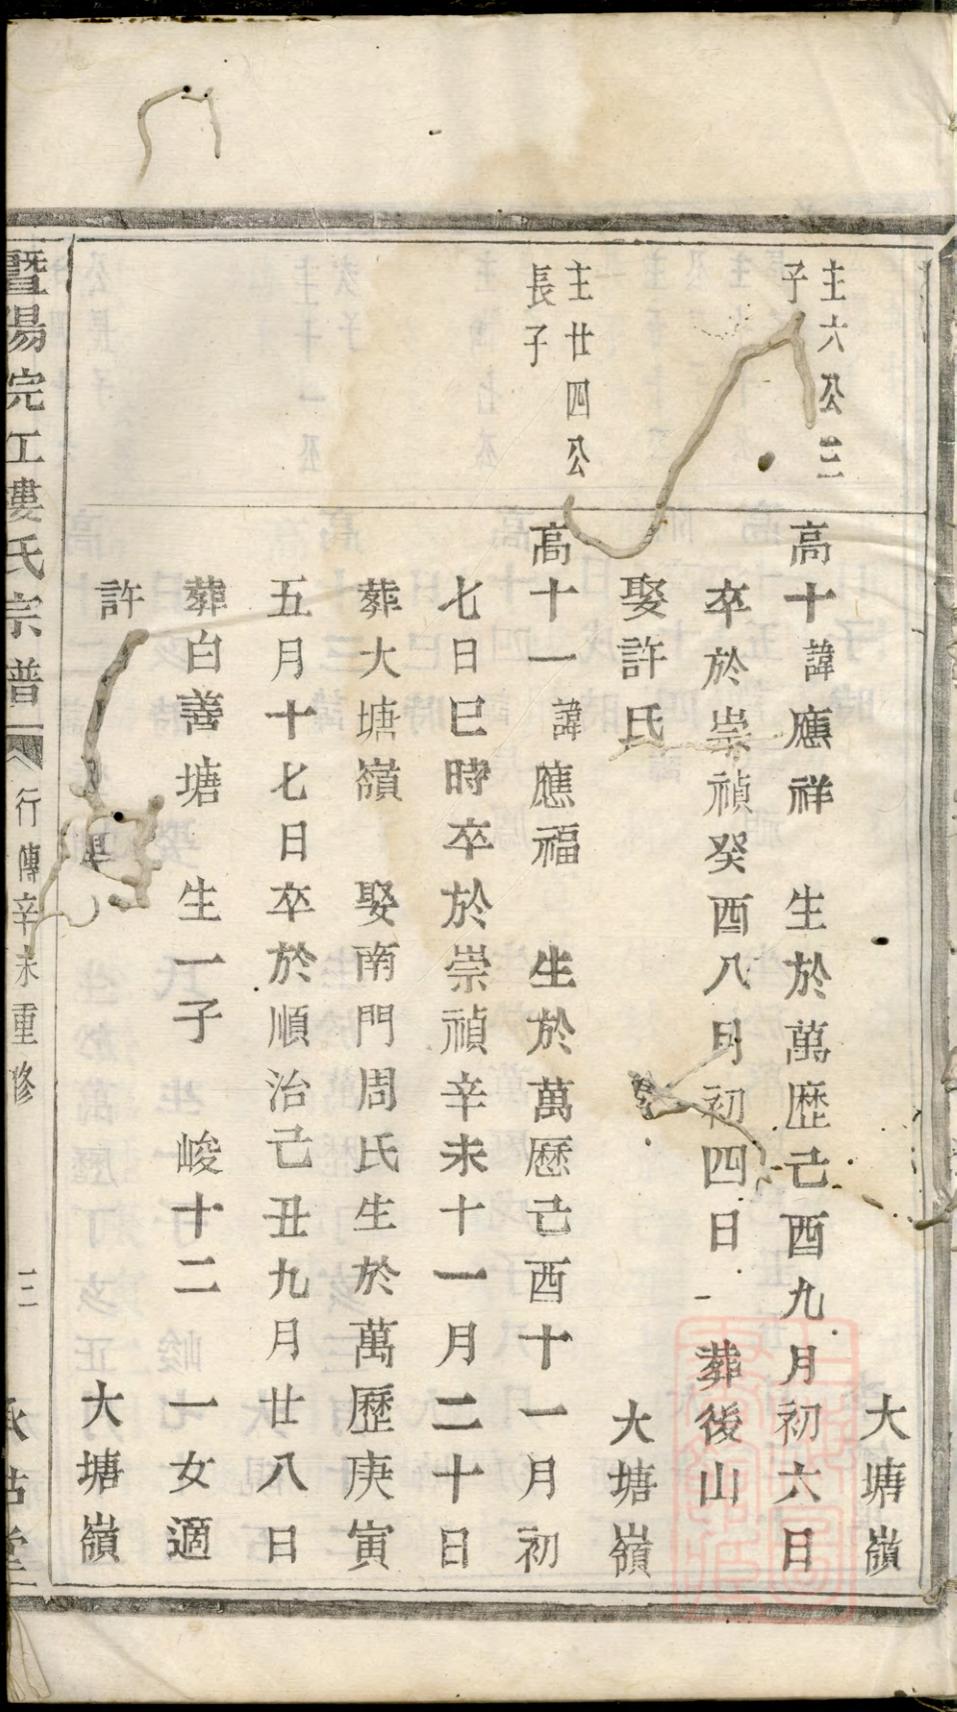 大塘嶺
主六公三
子
高十諱應祥　生於萬歷己酉九月初六日
卒於崇禎癸酉八月初四日　葬後山
娶許氏　大塘嶺
主廿四公
長子
高十一諱應福　生於萬歷己酉十一月初
七日巳時卒於崇禎辛未十一月二十日
葬大塘嶺　娶南門周氏生於萬歷庚寅
五月十七日卒於順治己丑九月廿八日
葬白善塘　生一子　峻十二　一女適
許　大塘嶺
暨陽浣江婁氏宗譜　行傳辛未重修　三